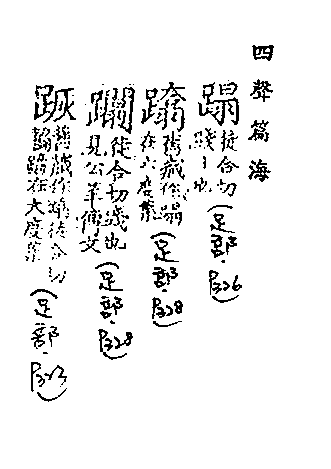 四聲篇海
蹋 徒合切
踐 也
(足部.P326)
舊藏作蹋
在六度集
(足部.P328)
躢 徒合切踐也
見公羊傳文
(足部.P328)
舊藏作 徒合切
在六度集
(足部.P323)